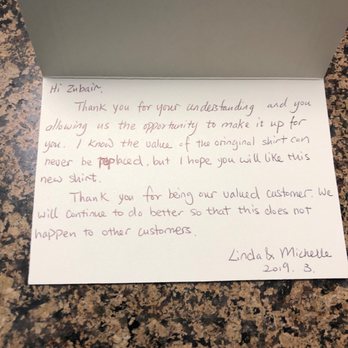 Hi Zubair.
Thank you for your understanding and you
allowing us the opportunity to make it up for
you. I know the value of the oringinal shirt can
never be replaced, but I hope you will like this
new shirt.
Thank you for being our valued customer. We
will continue to do better so that this does not
happen to other customers.
Linda & Michelle
2019. 3.